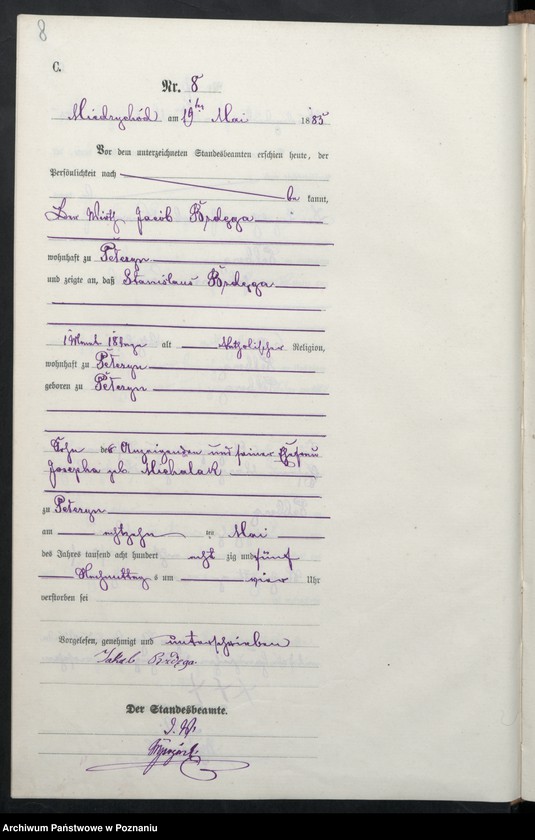 8
C.
Nr. 8
am 19ten Mai 1885
Vor dem unterzeichneten Standesbeamten erschien heute, der
Persönlichkeit nach
be kannt,
Der Wirth Jacob
wohnhaft zu
und zeigte an, daß Stanislaus
1 Monat 18 Tage alt katholischer Religion,
wohnhaft zu
geboren zu
Sohn des Anzeigenden und seiner Ehefrau
Josepha geb. Michalak
zu
am achtzehn ten Mai
des Jahres tausend acht hundert acht zig und fünf
Nachmittag s um vier Uhr
verstorben sei
Vorgelesen, genehmigt und unterschrieben
Jakob
Der Standesbeamte.
Archiwum Państwowe w Poznaniu